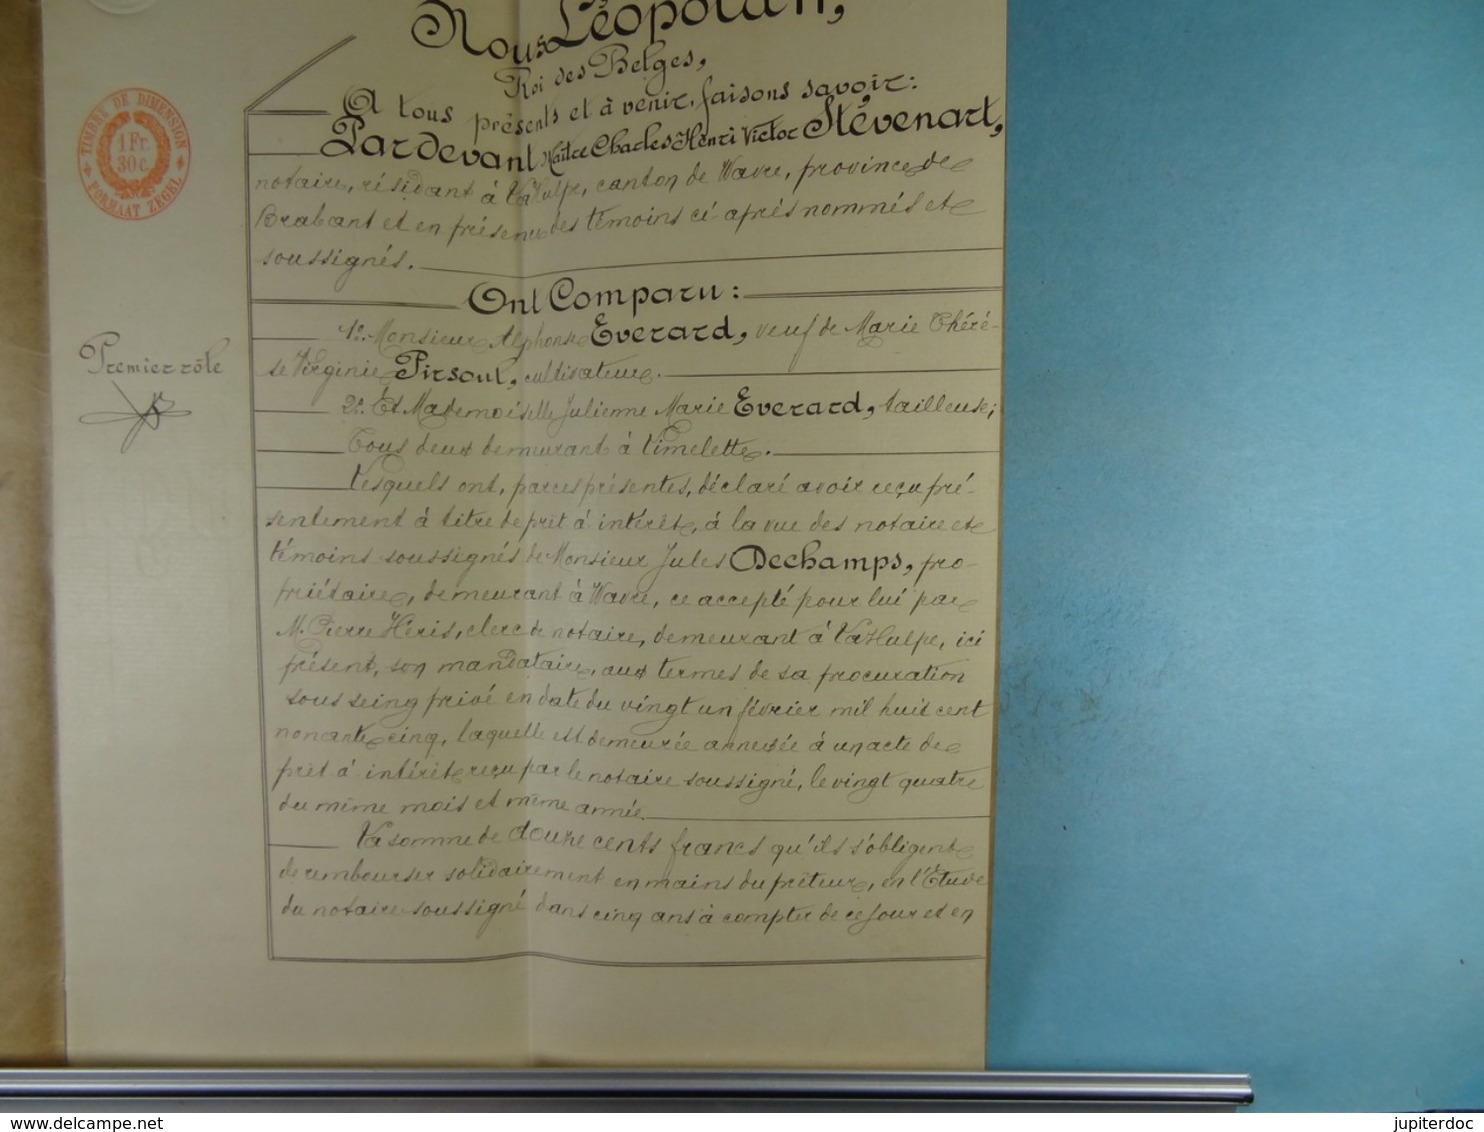 Nous Léopold II,
Roi des Belges,
A tous présents et à venir, faisons savoir:
Pardevant Maître Charles Henri Victor Stévenart,
notaire, résidant à La Hulpe, canton de Wavre, province de
Brabant et en présence des témoins ci après nommés et
soussignés.
Ont Comparu:
1º. Monsieur Alphonse Everard, veuf de Marie Thérè-
se Virginie Pirsoul, cultivateur.
2º. Et Mademoiselle Julienne Marie Everard, tailleuse;
Tous deux demeurant à Limelette.
Lesquels ont, par ces présentes, déclaré avoir reçu pré-
sentement à titre de prêt à intérêt, à la vue des notaire et
témoins soussignés de Monsieur Jules Dechamps, pro-
priétaire, demeurant à Wavre, ce accepté pour lui par
M. Pierre Héris, clerc de notaire, demeurant à La Hulpe, ici
présent, son mandataire, aux termes de sa procuration
sous seing privé en date du vingt un février mil huit cent
nonante cinq, laquelle est demeurée annexée à un acte de
prêt à intérêt reçu par le notaire soussigné, le vingt quatre
du même mois et même année.
La somme de douze cents francs qu'ils s'obligent
de rembourser solidairement en mains du prêteur, en l'Etude
du notaire soussigné dans cinq ans à compter de ce jour et en
TIMBRE DE DIMENSION
1 Fr.
30 c.
FORMAAT ZEGEL
Premier rôle
© jupiterdoc
www.delcampe.net